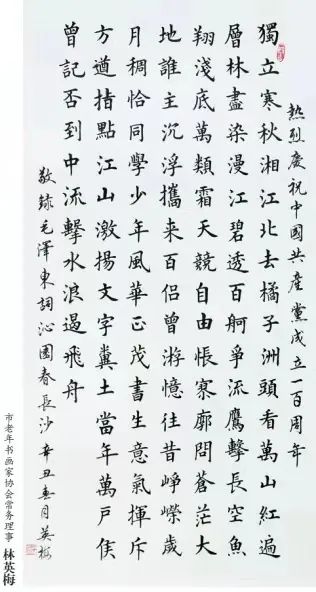 热烈慶祝中國共產黨成立一百周年
獨立寒秋湘江北去橘子洲頭看萬山紅遍
層林盡染漫江碧透百舸爭流鷹擊長空魚
翔淺底萬類霜天競自由悵寥廓問蒼茫大
地誰主沉浮攜来百侶曾游憶往昔崢嶸歲
月稠恰同學少年風華正茂書生意氣揮斥
方遒指點江山激揚文字糞土當年萬戶侯
曾記否到中流擊水浪遏飛舟
敬錄毛澤東詞沁園春長沙辛丑春月英梅
市老年书画家协会常务理事 林英梅